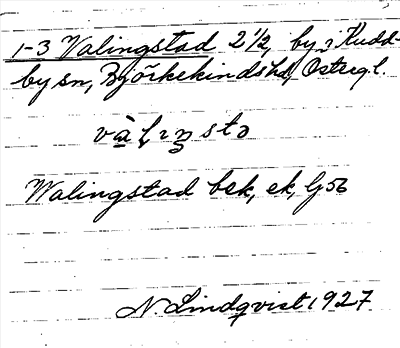 1-3 Valingstad 2 1/2, by, Kudd-
by sn, Björkekinds hd, Östergl.
Walingstad bek, ek, G56
N. Lindqvist 1927